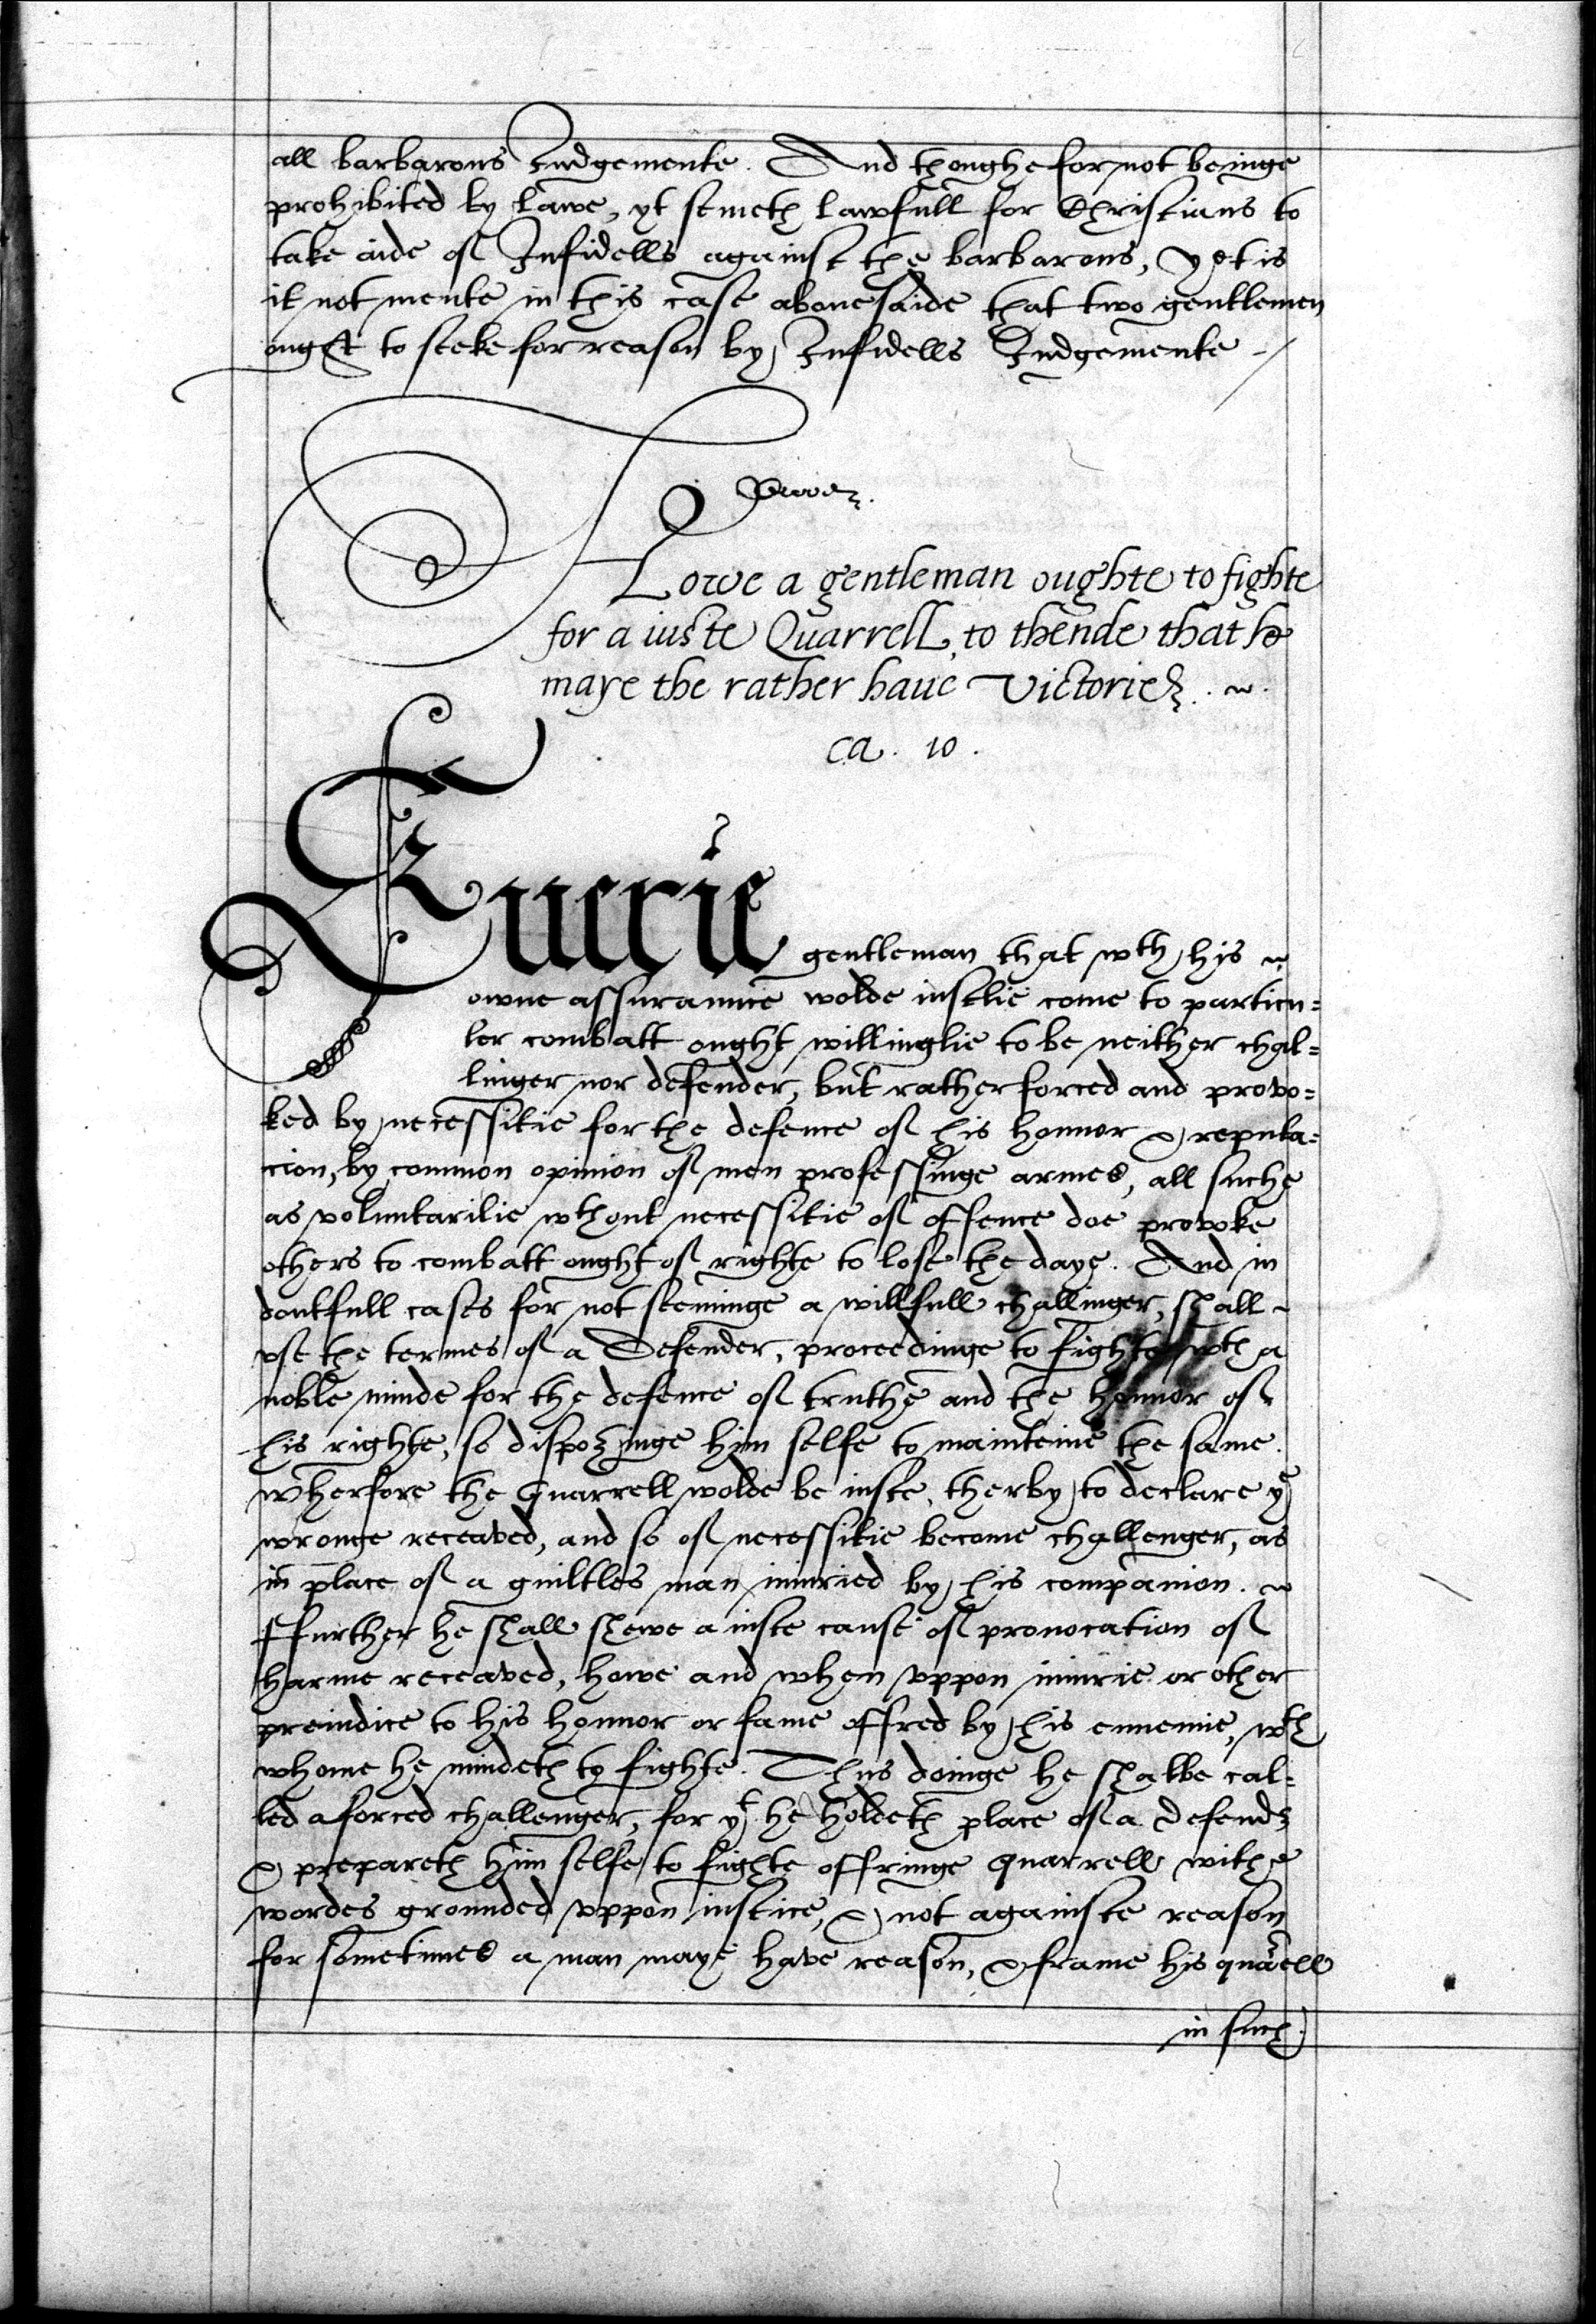 all barbarous Iudgemente. And thoughe for not beinge
prohibited by lawe, yt semeth lawfull for Christians to
take aide of Infidells against the barbarous, yet is
it not mente in this case abouesaide that two gentlemen
ought to seeke for reason by Infidells Iudgemente
Howe a gentleman oughte to fighte
for a iuste Quarrell, to thende that he
maye the rather haue Victorie.
ca. 10.
Euerie gentleman that wth his
owne assuraunce wolde iustlie come to particu=
ler combatt ought willinglie to be neither chal=
linger nor defender, but rather forced and provo=
ked by necessitie for the defence of his honnor & reputa=
cion, by common opinion of men professinge armes, all suche
as voluntarilie wthout necessitie of offence doe provoke
others to combatt ought of righte to lose the daye. And in
doutfull cases for not seeminge a willfull challinger, shall
vse the termes of a Defender, proceedinge to fighte wth a
noble minde for the defence of truthe and the honnor of
his righte, so disposinge him selfe to mainteine the same.
wherfore the Quarrell wolde be iuste, therby to declare ye
wronge receaved, and so of necessitie become challenger, as
in place of a guiltles man iniuried by his companion.
ffurther he shall shewe a iuste cause of prouocation of
harme receaved, howe and when vppon iniurie or other
preiudice to his honnor or fame offred by his ennemie, wth
whome he mindeth to fighte. Thus doinge he shalbe cal=
led a forced challenger, for yt he holdeth place of a defendr
& prepareth him selfe to fighte offringe quarrell withe
wordes grounded vppon iustice, & not againste reason
for sometimes a man maye have reason, & frame his quarell
in such